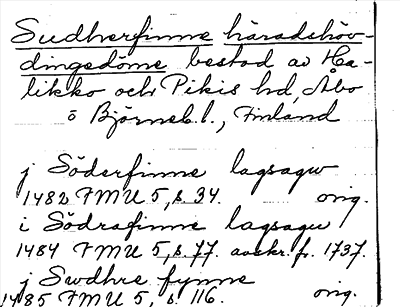 Sudherfinne häradshöv-
dingedöme bestod av Ha-
likko och Pikis hd, Åbo
o Björneb. l., Finland
j Söderfinne lagsagw
1482 FMU 5, s. 34. orig.
i Södrafinne lagsagu
1484 FMU 5, s. 77. avskr. fr. 1737.
j Swdhre fynne
1485 FMU 5, s. 116. orig.